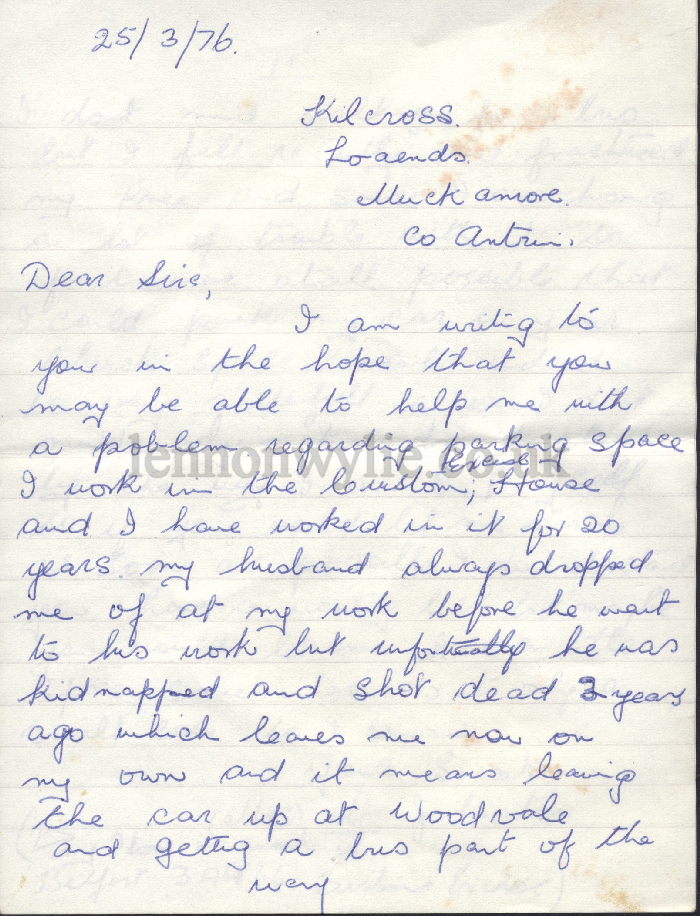 25/3/76.
Kilcross.
Loaends.
Muckamore.
Co Antrim.
Dear Sirs,
I am writing to
you in the hope that you
may be able to help me with
a poblem regarding parking space
I work in the Custom, Excise House
and I have worked in it for 20
years. my husband always dropped
me of at my work before he went
to his work but he was
kidnapped and shot dead years
ago which leaves me now on
my own and it means leaving
the car up at Woodvale
and gettig a bus part of the
way
lennonwylie.co.uk